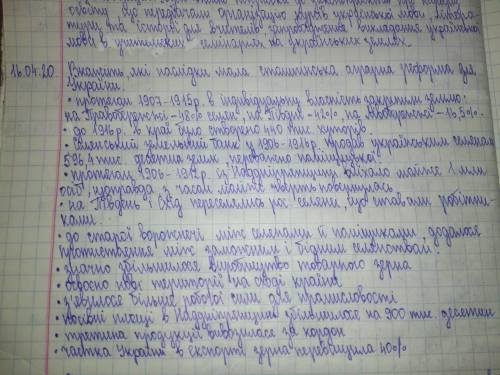 освіту, що передбачали організацію курсів української мови, літера-
тури та історії для вчителів, запровадження викладання української
мови в учительських семінаріях на українських землях.
16.04.20. Вкажіть, які наслідки мала столипінська аграрна реформа для
України.
• протягом 1907-1915р. в індивідуальну власність закріпили землю:
на Правобережжі - 48% селян, на Півдні - 42%, на Лівобережжі - 16,5%.
• до 1916р. в краї було створено 440 тис. хуторів.
• Селянський земельний банк у 1906-1916р. продав українським селянам
596,4 тис. десятин землі, переважно поміщицької
• протягом 1906-1912р. із Наддніпрянщини виїхало майже 1 млн
осіб, щоправда з часом майже чверть повернулась
• на Південь і Схід переселялись селяни, що ставали робітни-
ками.
• до старої ворожнечі між селянами й поміщиками, додалося
протистояння між заможним і бідним селянством.
• значно збільшилося виробництво товарного зерна
• освоєно нові території на сході країни
• з'явилося більше робочої сили для промисловості
• посівні площі в Наддніпрянщині збільшилося на 900 тис. десятин
• третина продукції вивозилося за кордон
• частка України в експорті зерна перевищила 40%